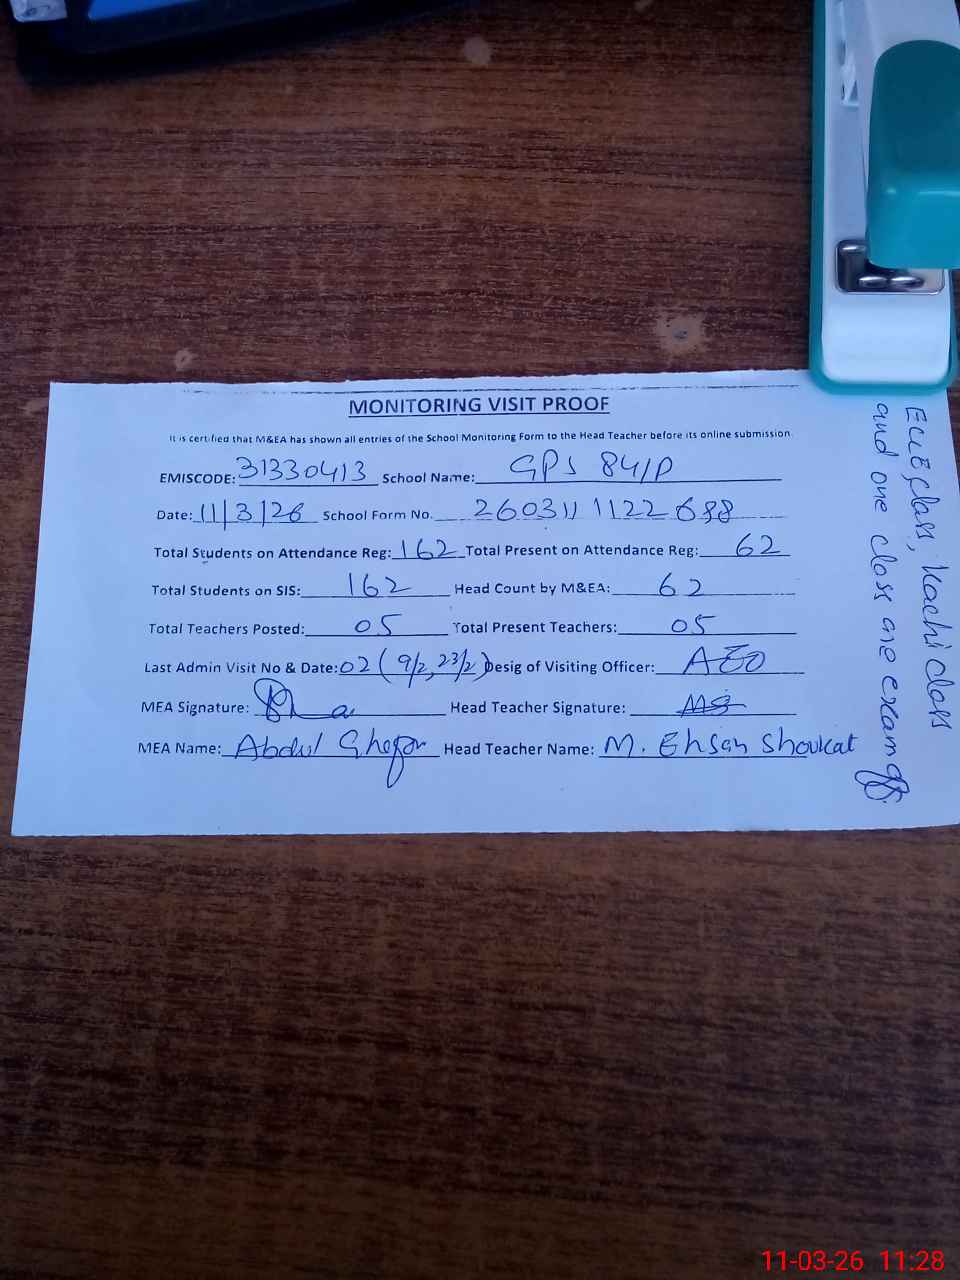 MONITORING VISIT PROOF
It is certified that M&EA has shown all entries of the School Monitoring Form to the Head Teacher before its online submission.
EMISCODE: 31330413 School Name: GPS 84/P
Date: 11/3/26 School Form No. 260311 1122688
Total Students on Attendance Reg: 162 Total Present on Attendance Reg: 62
Total Students on SIS: 162 Head Count by M&EA: 62
Total Teachers Posted: 05 Total Present Teachers: 05
Last Admin Visit No & Date: 02 (9/2, 23/2) Desig of Visiting Officer: AEO
MEA Signature: Head Teacher Signature:
MEA Name: Abdul Ghafar Head Teacher Name: M. Ehsan Shoukat
class, kachi class
and one class are exam
11-03-26 11:28